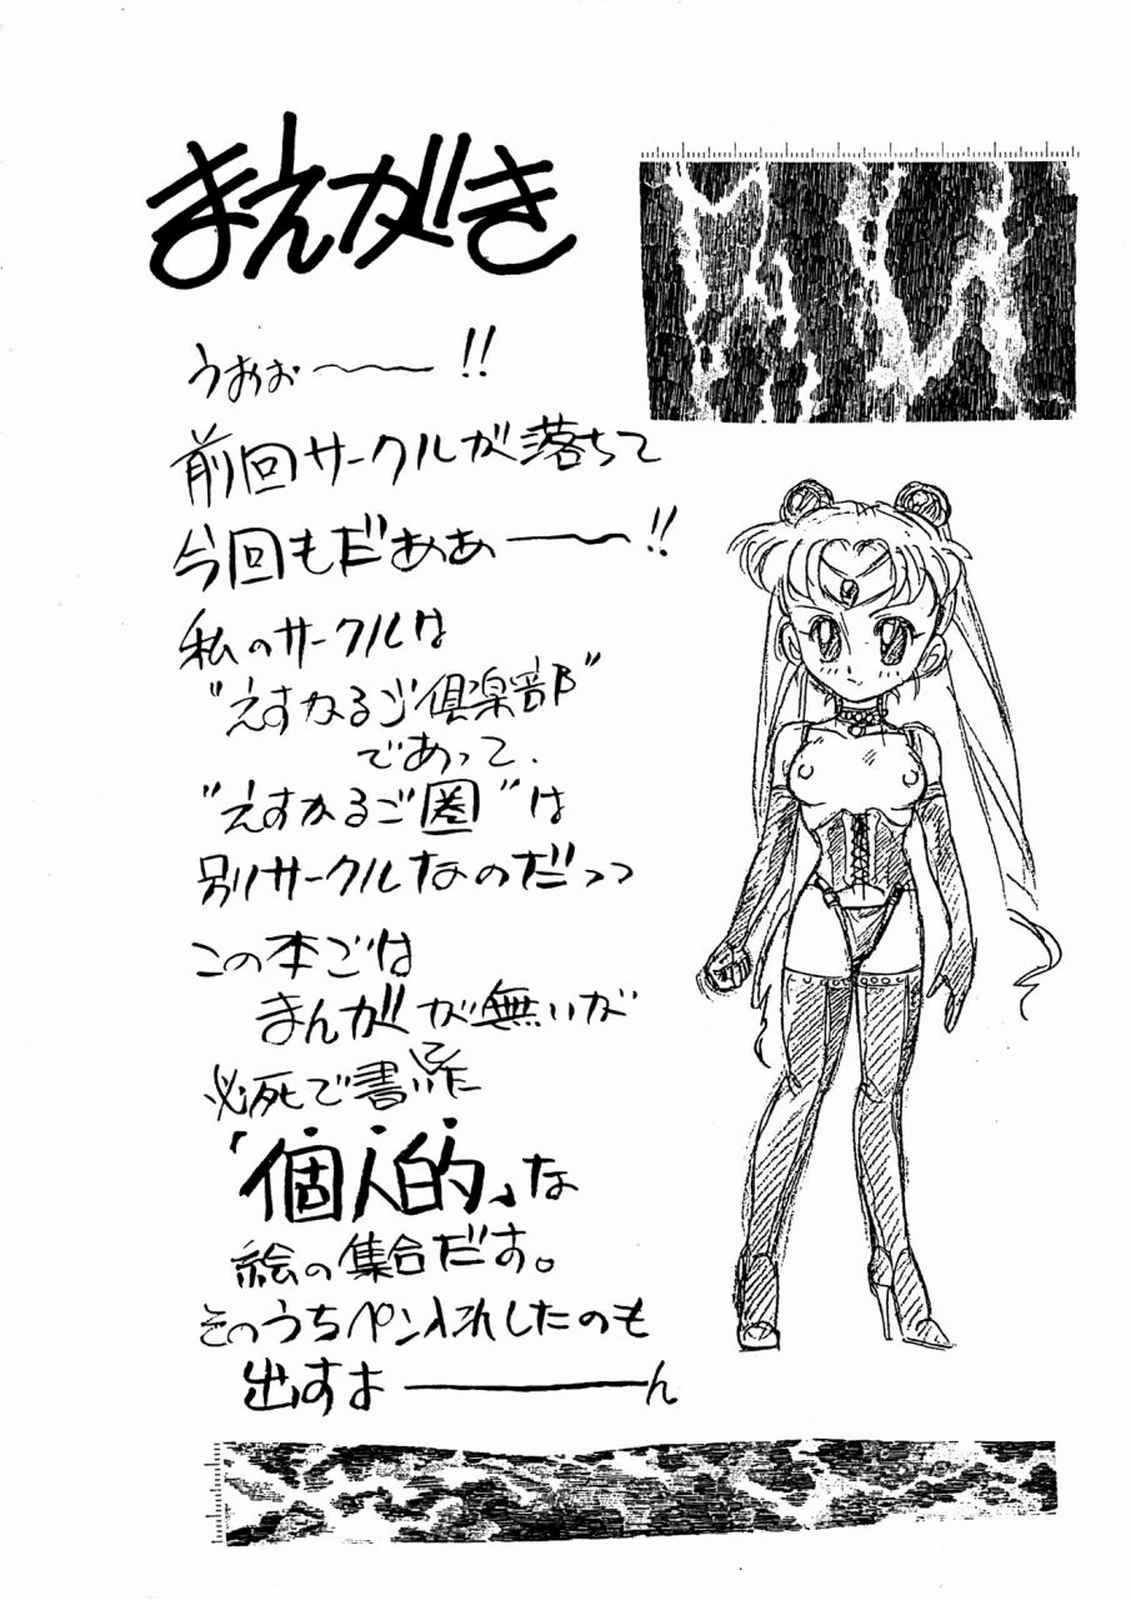 まえがき
うおぉ〜〜!!
前回サークルが落ちて
今回もだぁあ――〜!!
私のサークルは
"えすかるご倶楽部"
であって、
"えすかるご圏"は
別サークルなのだっっ
この本ごは
まんがが無いが
必死で書いた
「個人的」な
絵の集合だす。
そのうちペン入れしたのも
出すよ――――ん